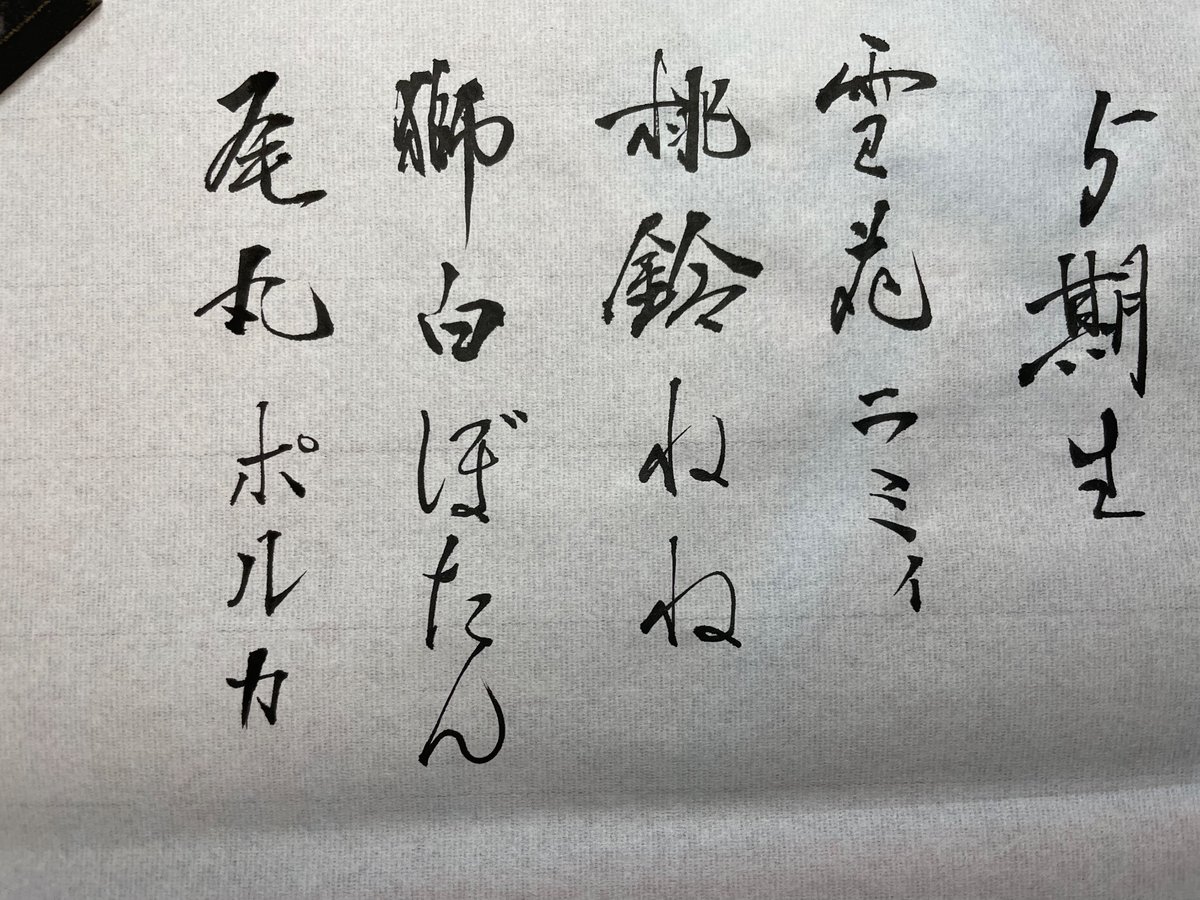 5期生
雪花ラミィ
桃鈴ねね
獅白ぼたん
尾丸ポルカ